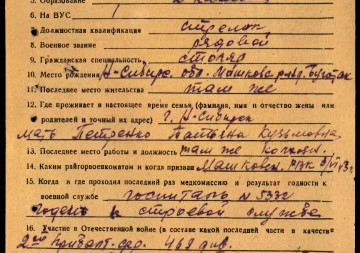 5. Образование 2 класса
6. На ВУС
7. Должностная квалификация стрелок
8. Военное звание рядовой
9. Гражданская специальность столяр
10. Место рождения Н-Сибирс. обл. Машковс. р-
11. Последнее место жительства там же
12. Где проживает в настоящее время семья (фамилия, имя и отчество жены или
родителей и точный их адрес) г. Н-Сибирск
мать Петренко Татьяна Кузьмовна
13. Последнее место работы и должность там же
14. Каким райгорвоенкоматом и когда призван Машковс. РВК
15. Когда и где проходил последний раз медкомиссию и результат годности к
военной службе госпиталь N
годен к строевой службе
16. Участие в Отечественной войне (в составе какой последней части в качестве
2ой 469